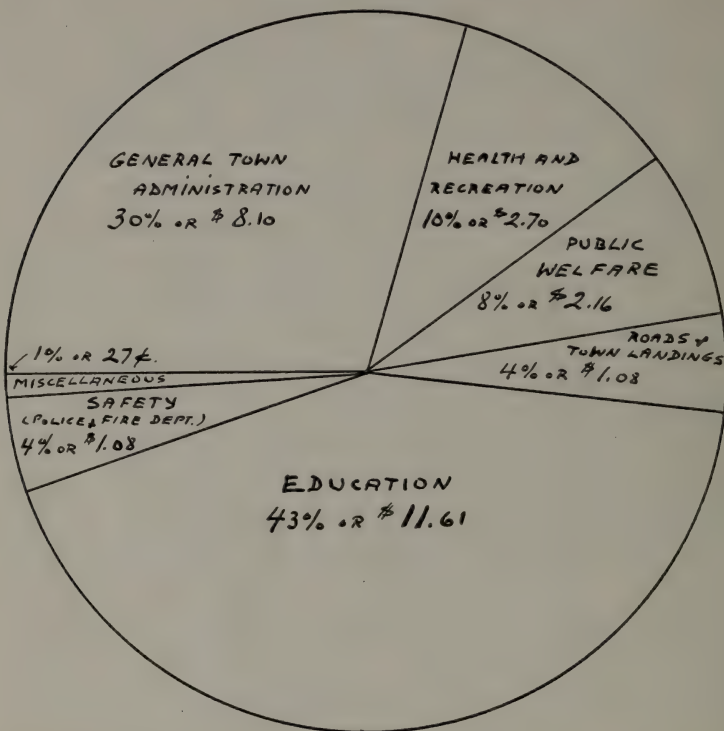 GENERAL TOWN
ADMINISTRATION
30% OR $ 8.10
HEALTH AND
RECREATION
10% OR $2.70
PUBLIC
WELFARE
8% OR $2.16
ROADS &
TOWN LANDINGS
4% OR $1.08
1% OR 27¢.
MISCELLANEOUS
SAFETY
(POLICE & FIRE DEPT.)
4% OR $1.08
EDUCATION
43% OR $11.61